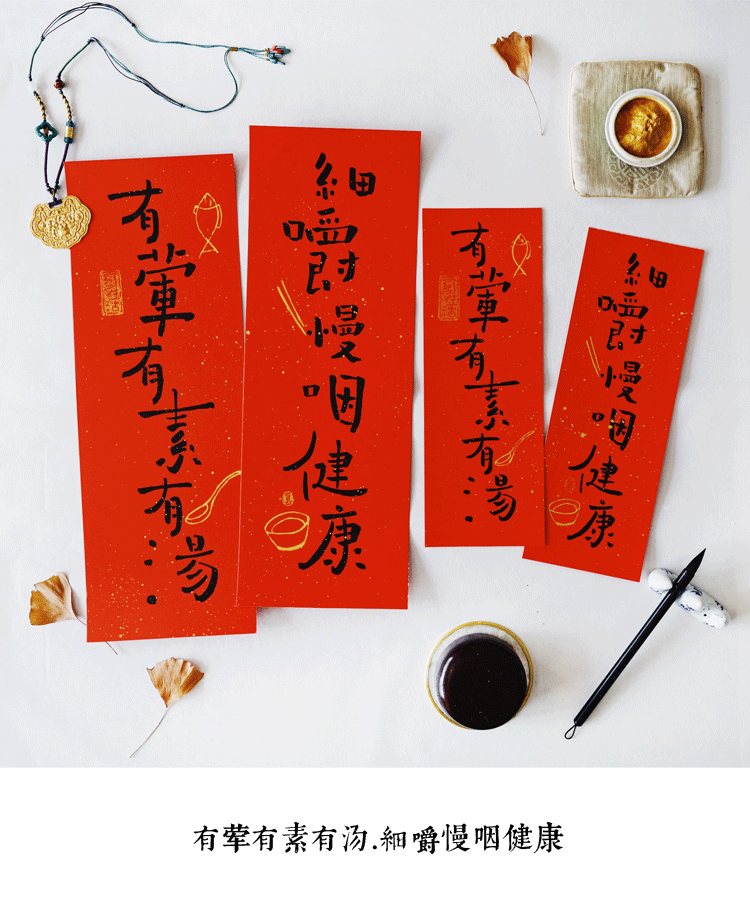 有葷有素有湯
細嚼慢咽健康
有葷有素有湯
細嚼慢咽健康
有荤有素有汤.細嚼慢咽健康